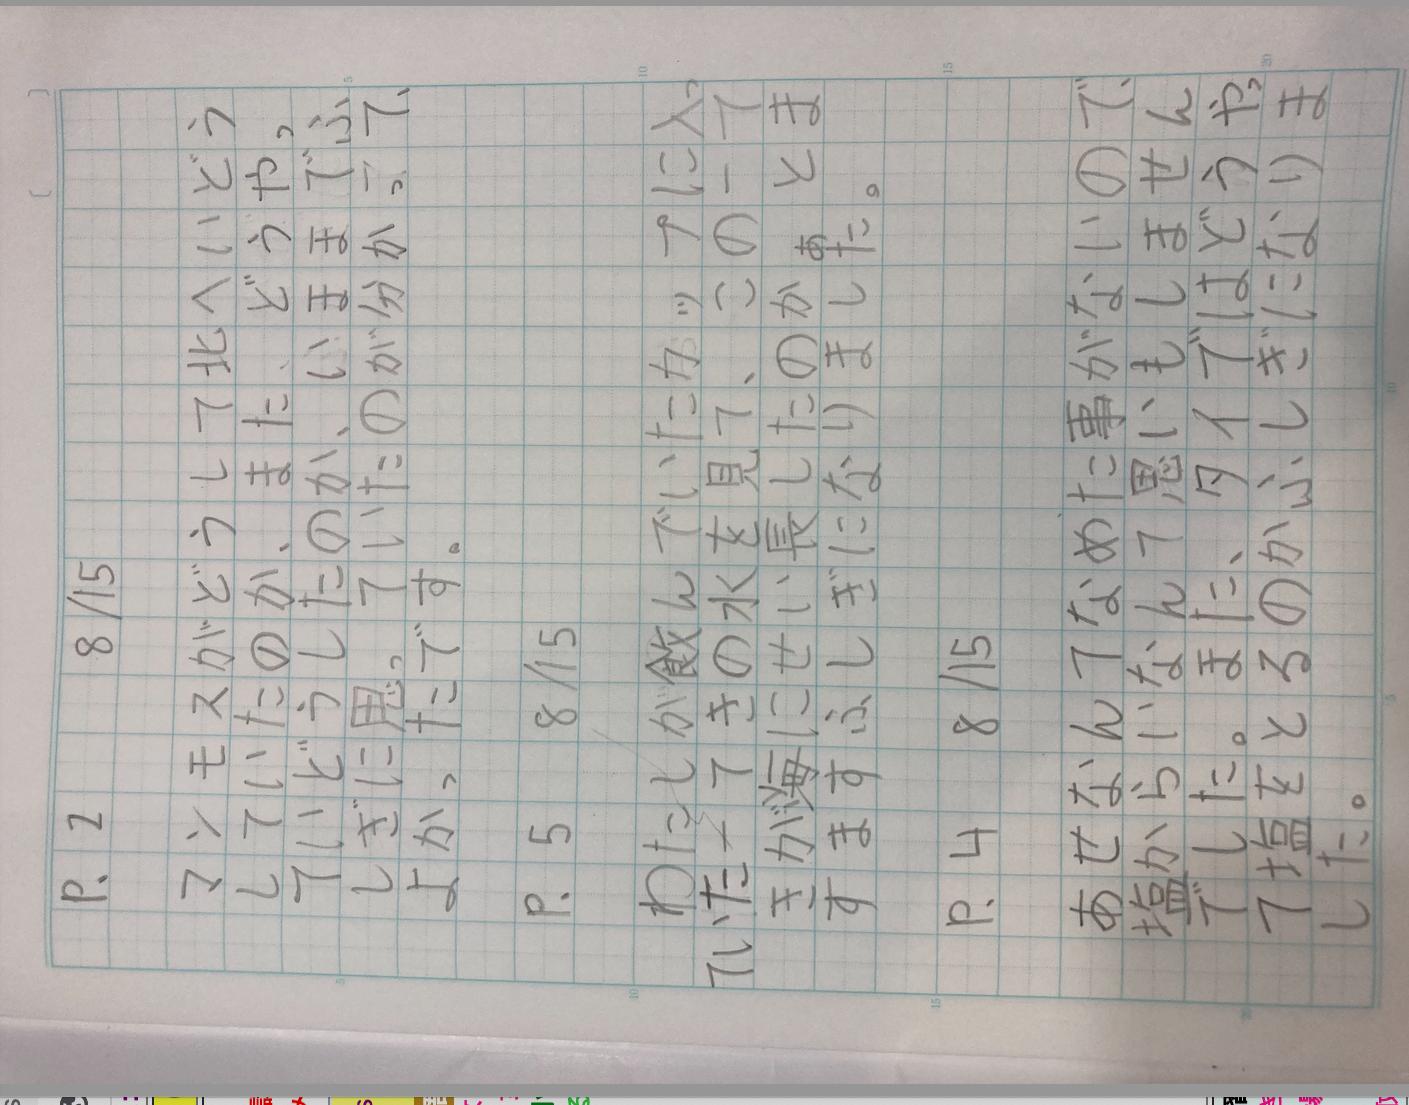 P. 2  8/15
マンモスがどうして北へいどう
していたのか、また、どうやっ
ていどうしたのか、いままでふ
しぎに思っていたのが分かって、
よかったです。
P. 5  8/15
わたしが飲んでいたカップに入っ
ていたてきの水を見て、この一て
きが海にせい長したのかあとま
すますふしぎになりました。
P. 4  8/15
あせなんてなめた事がないので、
塩からいなんて思いもしません
でした。また、ハワイではどうやっ
て塩をとるのかふしぎになりま
した。
5
10
15
20
5
10
15
20
5
10